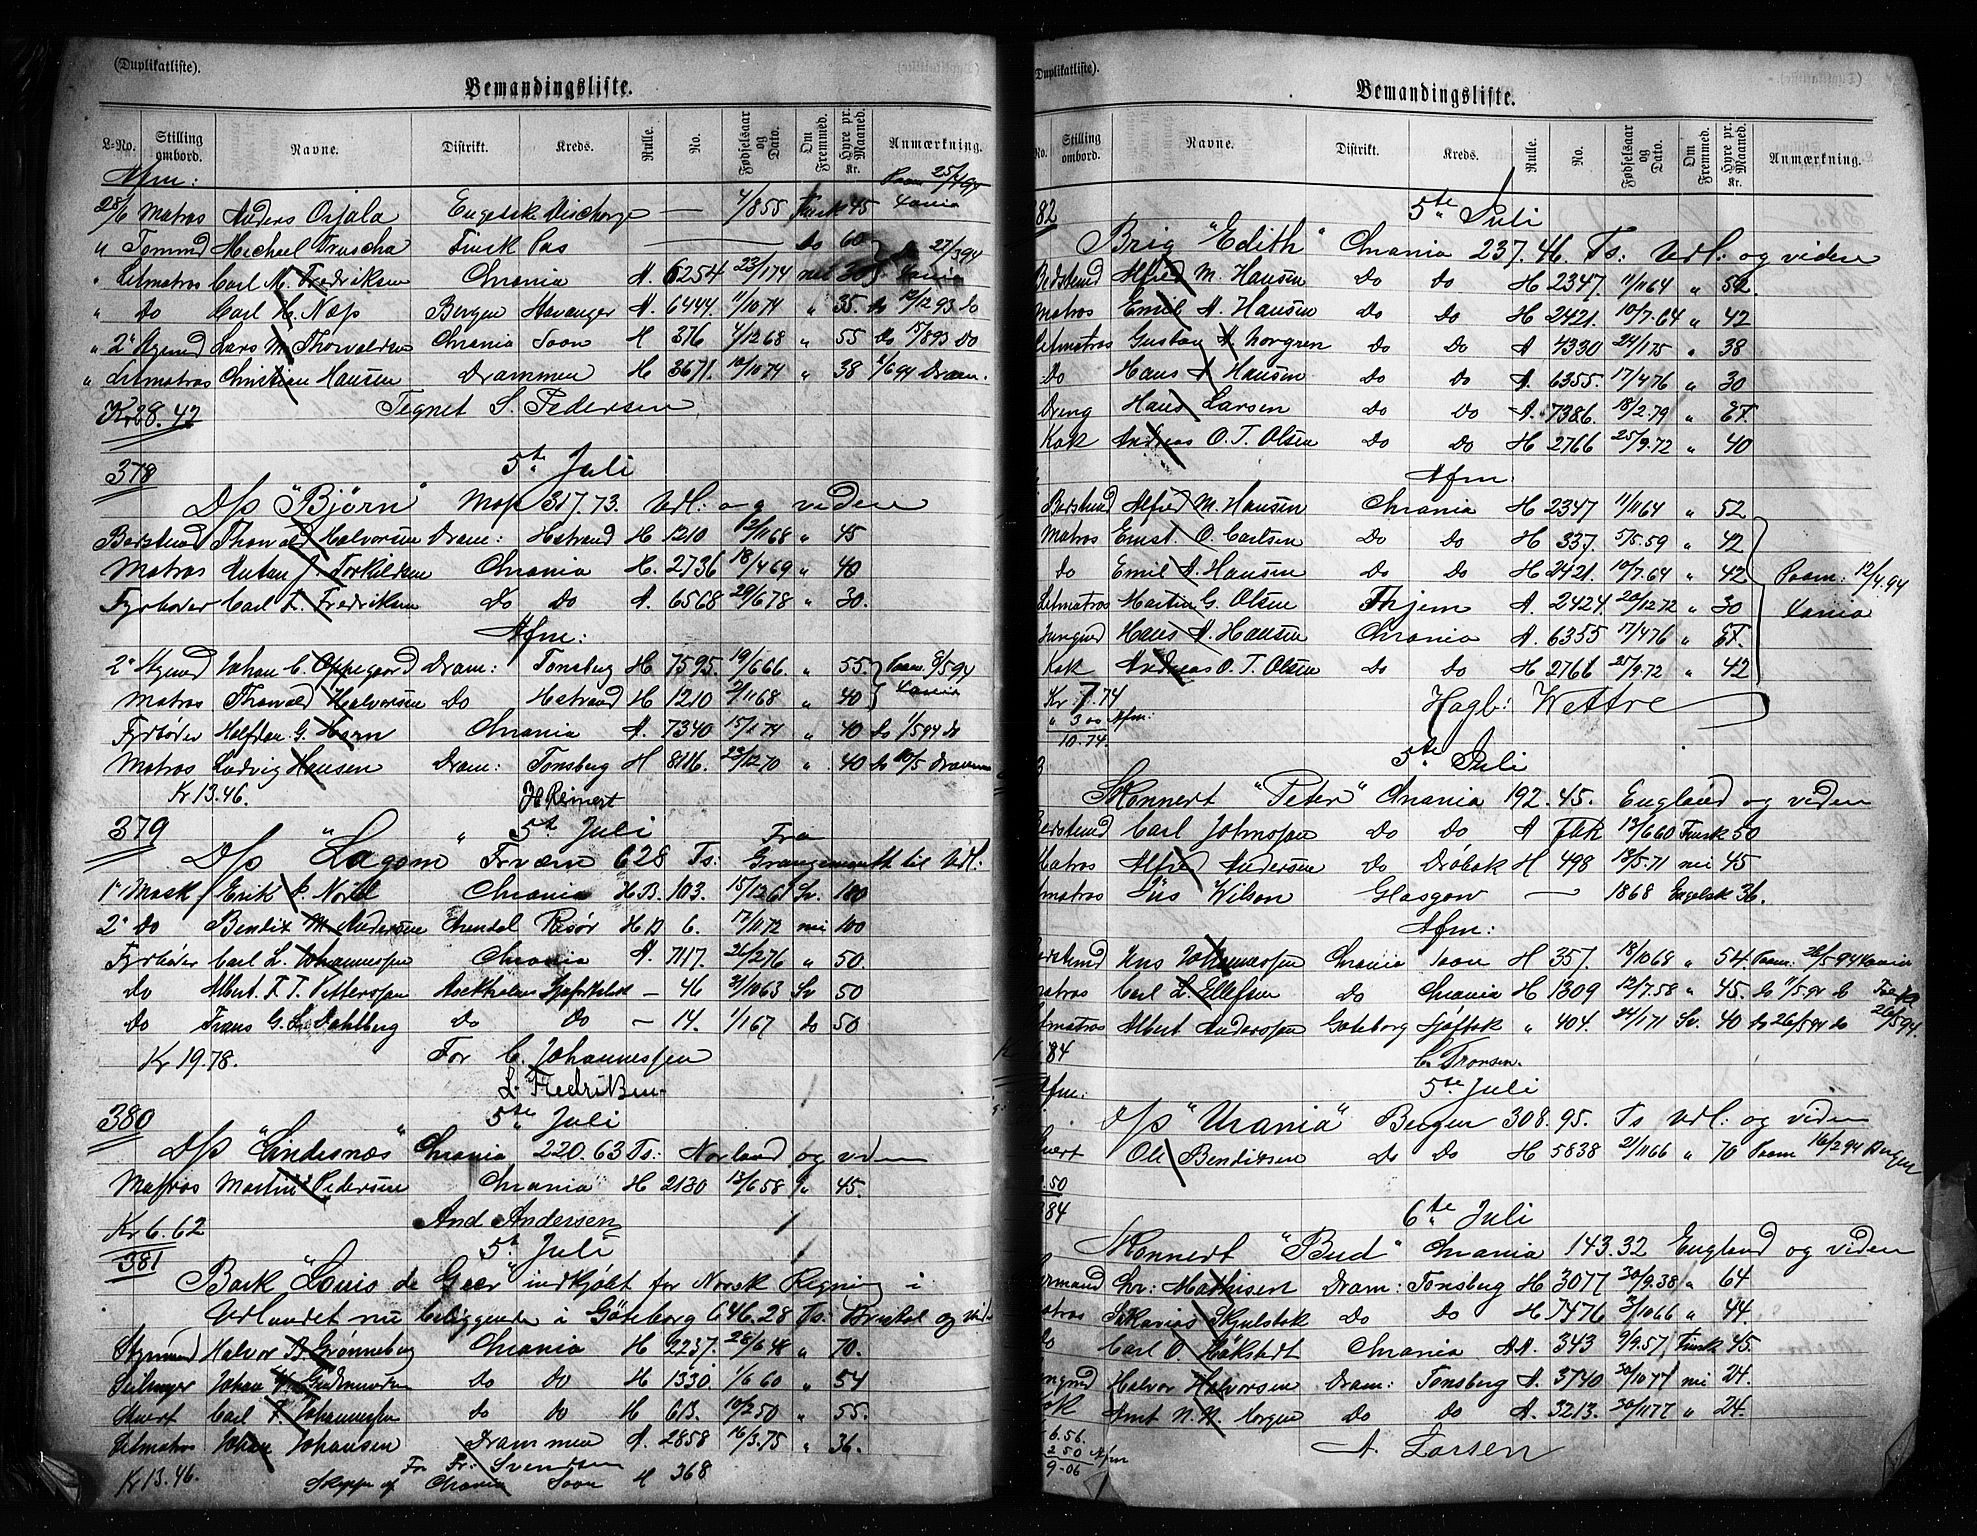 (Duplikatliste).
Bemandingsliste.
L-No. Stilling ombord. Navne. Distrikt. Kreds. Rulle. No. Fødselsaar og Dato. Om Fremmed. Hyre pr. Maaned. Kr. Anmærkning.
Afm:
28/6 Matros Anders Engelsk Discharge — 4/8 55 Finsk 45
" Tømmd Michael Truscha Tück Pas do 60
" Letmatros Carl M. Fredriksen Chrania A. 6254 23/1 74 nei 30
" Do Carl H. Næss Bergen Stavanger A. 6444 11/10 74 " 35. do 12/12 93 do
" 2' Styrmd Lars M. Thorvaldsen Chrania Soon H 376 4/12 68 " 55 do 15/8 93 do
" Letmatros Christian Hansen Drammen H 3671. 10/10 74 " 38 1/6 94 Dram.
Kr 28.42 Tegnet S. Pedersen
378 5te Juli
D/s "Bjørn" Moss 317.73. Udl: og viden
Baadsmd Thorvald Halvorsen Dram: Hstrand H 1210 12/11 68 " 45
Matros Anton J. Torkildsen Chrania H. 2736 18/4 69 " 40
Fyrbøder Carl F. Fredriksen Do Do A. 6568 29/6 78 " 30.
Afm:
2' Styrmd Johan C. Oppegaard Dram: Tønsberg H 7595. 19/6 66. " 55
Matros Thorvald Halvorsen Do Hstrand H 1210 12/11 68 " 40
Fyrbøder Halfdan G. Horn Chrania A. 7340 15/2 74 " 40 do 1/5 94 do
Matros Ludvig Hansen Dram: Tønsberg H 8116. 23/12 70 " 40 do 10/5 Drammen
Kr 13.46. H Reinert
379 5te Juli
D/s "Lagom" Tværa 628 Ts: Fra Grangemouth til Udl:
1' Mask Erik P. Noréll Chrania H B. 103. 15/12 61 Sv. 100
2' Do Bendix M. Andersen Arendal Risør H B 6. 17/11 72 nei 100
Fyrbøder Carl L. Johannessen Chrania A. 7117. 26/2 76 " 50.
do Albert F. T. Pettersson Stockholms Sjøfrtshus — 46 31/10 63 Sv 50
do Frans G. L. Dahlberg Do Do — 14. 1/1 67 do 50
Kr 19.78. For C. Johannessen
L. Fredriksen
380 5te Juli
D/s "Lindesnæs" Chrania 220.63 Ts: Norland og viden
Matros Martin Pedersen Chrania H 2130 13/6 58 " 45.
Kr 6.62 And Andersen
381 5te Juli
Bark "Louis de Geer" indkjøbt for Norsk Regning i
Udlandet nu beliggende i Göteborg 646.28 Ts:
Styrmand Halvor B Grønneberg Chrania H 2237. 28/6 48 " 70.
Seilmager Johan Gudmundsen do do H 1330. 1/6 60 " 54
Stuert Carl F. Johannessen do do H 613. 10/2 50 " 55.
Letmatros Johan Johansen Drammen A. 2858 16/3 75 " 36.
Kr 13.46. For Fr: Svendsen
Skipper af Chrania Soon H 368
(Duplikatliste).
Bemandingsliste.
No. Stilling ombord. Navne. Distrikt. Kreds. Rulle. No. Fødselsaar og Dato. Om Fremmed. Hyre pr. Maaned. Kr. Anmærkning.
82 5te Juli
Brig "Edith" Chrania 237.46. Ts: Udl: og viden
Bedstmd Alfred M. Hansen Do Do H 2347. 11/11 64 " 52.
Matros Emil A. Hansen Do Do H 2421. 10/7.64 " 42
Letmatros Gustav A. Norgren Do Do A 4330 24/1 75 " 38
Do Hans A Hansen Do Do A. 6355. 17/4 76 " 30
Dreng Hans Larsen Do Do A. 7386 18/2.79 "
Kok Andreas O. T. Olsen Do Do H 2766 25/9.72 " 40
Afm.
Alfred M. Hansen Chrania H 2347 11/11 64 " 52
Matros Ernst O. Carlsen Do Do H 337. 5/5.59 " 42
Do Emil A. Hansen Do Do H 2421. 10/7.64 " 42
Letmatros Martin G. Olsen Thjem A. 2424. 20/12 72 " 30
Jungmd Hans A. Hansen Chrania A. 6355 17/4 76 "
Kok Andreas O. T. Olsen Do Do H 2766 25/9.72 " 42
Paam: 12/4.94
Kr 7.74
" 3 00 Afm:
10.74.
Hagb: Wettre
5te Juli
Skonnert "Peter" Chrania 192.45. England og viden
Carl Johnssen Do Do A 13/6 60 Finsk 50
Matros Alfred Andersen Do Drøbak H 498 13/5.71 nei 45
Wilson Glasgow — 1868 Engelsk 36.
Afm:
Jens Johannessen Chrania Soon H 357. 18/10 68 " 54.
Matros Carl L. Ellefsen Do Chrania H 1309 12/7.58 " 45.
Letmatros Albert Andersson Göteborg " 404. 24/1 71 Sv. 40 do 26/5 94 do
84 C. Thorsen.
5te Juli
Afm:
D/s "Urania" Bergen 308.95. Ts Udl: og viden
Stuert Ole Bendixen Do Do H 5838 21/11 66 " 70 Paam 16/2 94 Bergen
.50
384 6te Juli
Skonnert "Bud" Chrania 143.32 England og viden
Chr: Mathisen Dram: Tønsberg H 3077 30/9.38 " 64
Matros Zakarias Skjelstok Do Do H 7476 31/10 66 " 44.
Do Carl O. Hökstedt Chrania AA. 343 9/9.57 Finsk 45.
Halvor Halvorsen Dram: Tønsberg A. 3740 30/10 77 nei 24.
Kok Amt N. N. Horgen Do Do A. 3213. 30/11 77 " 24.
6.56.
2 50 Afm
9-06
A Larsen